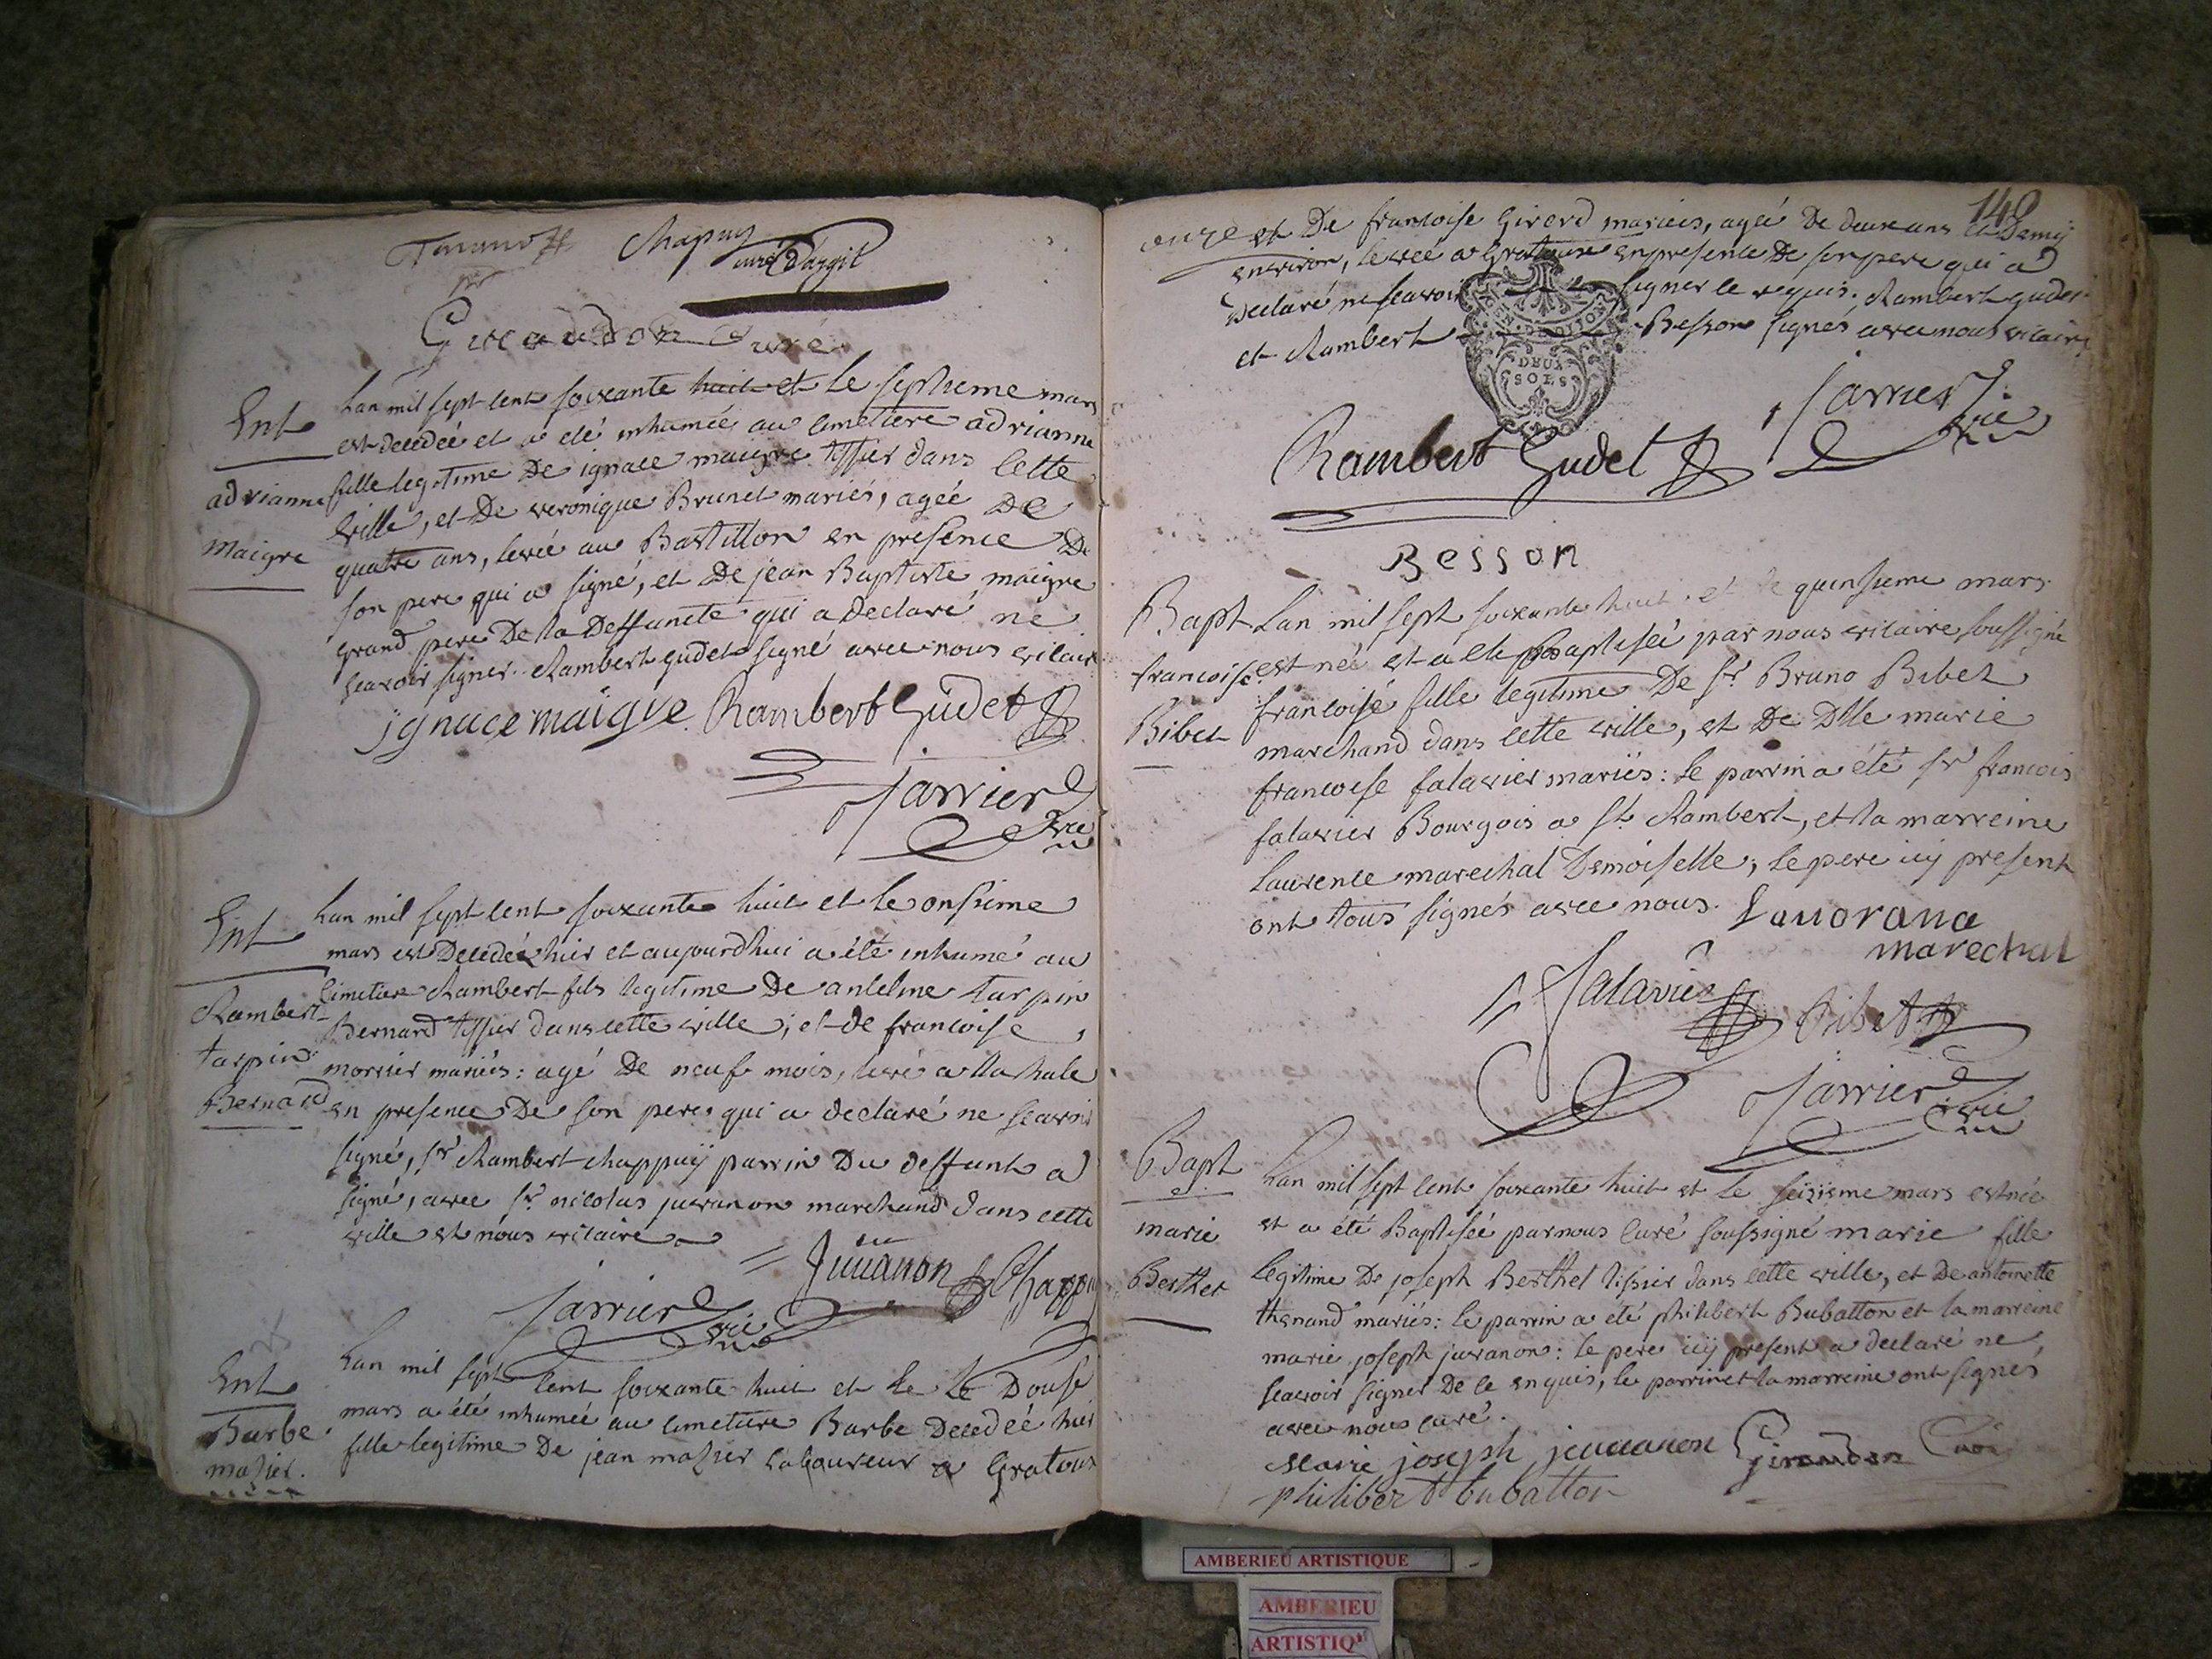 Chapuy
curé d'argit
Giraudon Curé
Ent
adrianne
maigre
Lan mil sept cent soixante huit et le septieme mars
est decedeé et a eté inhumeé au cimetiere adrianne
fille legitime De ignace maigre tissier dans cette
ville, et De veronique Brunet mariés, ageé De
quatre ans, leveé au Bastillon en presence De
son pere qui a signé, et De jean Baptiste maigre
grand pere De la Deffuncte qui a Declaré ne
scavoir signer. Rambert gudet signé avec nous vicaire
ignace maigre Rambert Gudet
Jarrier
vic
Ent
Rambert
tarpin
Bernard
Lan mil sept cent soixante huit et le onsieme
mars est Decedeé hier et aujourdhui a été inhumé au
cimetiere Rambert fils legitime De antelme tarpin
Bernard tissier dans cette ville, et de francoise
morrier mariés: agé De neuf mois, levé a la hale
en presence De son pere qui a declaré ne scavoir
signé, sr Rambert chappuÿ parrin Du deffunt a
signé, avec sr nicolas juvanon marchand dans cette
ville et nous vicaire
Juvanon Chappuy
Jarrier
vic
Ent
Barbe
mazier.
Lan mil sept cent soixante huit et le le Douse
mars a été inhumeé au cimetiere Barbe Decedeé hier
fille legitime De jean mazier laboureur a Gratoux
148
et De francoise Girerd mariés, ageé De deux ans et Demÿ
environ, leveé a Gratoux en presence De son pere qui a
declaré ne scavoir signer le requis. Rambert gudet
et Rambert Besson signés avec nous vicaire
GEN. DE DIJON
DEUX
SOLS
Jarrier
vic
Rambert Gudet
Besson
Bapt
francoise
Bibet
Lan mil sept soixante huit et le quinsieme mars
est neé et a eté Baptiseé par nous vicaire soussigné
francoise fille legitime De sr Bruno Bibet
marchand dans cette ville, et De Dlle marie
francoise salavier mariés: le parrin a été sr francois
salavier Bourgois a st Rambert, et la marreine
Laurence marechal Demoiselle; le pere icy present
ont tous signés avec nous.
marechal
Salavier Bibet
Jarrier
vic
Bapt
marie
Berthet
Lan mil sept cent soixante huit et le seizieme mars est née
et a été Baptiseé par nous curé soussigné marie fille
legitime De joseph Berthet tissier dans cette ville, et De antoinette
thenand mariés: le parrin a été philibert Bubatton et la marreine
marie joseph juvanon: le pere icy present a declaré ne
scavoir signer De ce enquis, le parrin et la marreine ont signés
avec nous curé.
Marie joseph jeuuanon Giraudon Curé
philibert bubatton
AMBERIEU ARTISTIQUE
AMBERIEU
ARTISTIQ